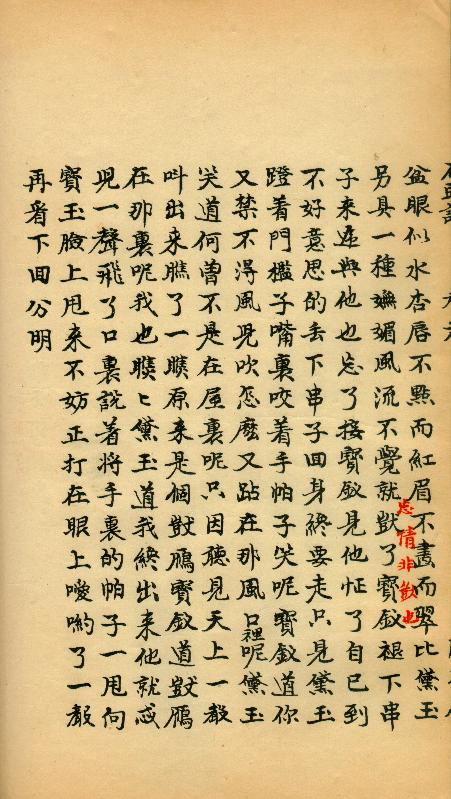 盆眼似水杏唇不點而紅眉不畫而翠比黛玉
另具一種嫵媚風流不覺就獃了寳釵褪下串
忘情非獃也
子来逓與他也忘了接寳釵見他怔了自己到
不好意思的丢下串子回身終要走只見黛玉
蹬着門檻子嘴裏咬着手帕子笑呢寳釵道你
又禁不淂風児吹怎麽又跕在那風口裡呢黛玉
笑道何曾不是在屋裏呢只因聴見天上一声
呌出来瞧了一瞧原来是個獃鴈寳釵道獃鴈
在那裏呢我也瞧〻黛玉道我終出来他就忒
児一聲飛了口裏說着將手裏的帕子一甩向
寳玉臉上甩来不妨正打在眼上噯喲了一声
再看下回分明